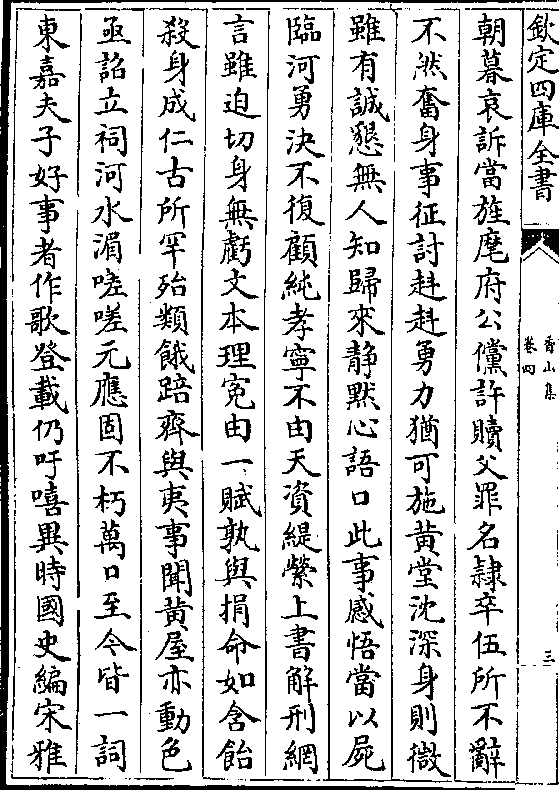 欽定四庫全書
香山集
卷四
三
朝暮哀訴當旌麾府公儻許贖父罪名隷卒伍所不辭
不然奮身事征討赳赳勇力猶可施黃堂沈深身則微
雖有誠懇無人知歸來静默心語口此事感悟當以屍
臨河勇決不復顧純孝寧不由天資緹縈上書解刑網
言雖迫切身無虧文本理寃由一賦孰與捐命如含飴
殺身成仁古所罕殆類餓踣齊與夷事聞黃屋亦動色
亟詔立祠河水湄嗟嗟元應固不朽萬口至今皆一詞
東嘉夫子好事者作歌登載仍吁嘻異時國史編宋雅